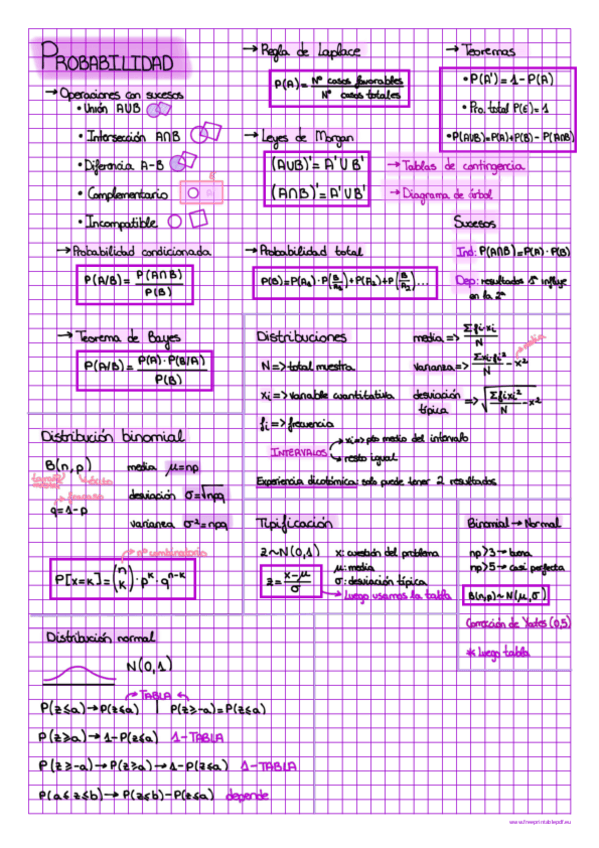 PROBABILIDAD
→ Operaciones con sucesos
• Unión A∪B
• Intersección A∩B
• Diferencia A-B
• Complementario
• Incompatible
→ Regla de Laplace
P(A) = Nº casos favorables / Nº casos totales
→ Leyes de Morgan
(A∪B)' = A'∪B'
(A∩B)' = A'∪B'
→ Teoremas
• P(A') = 1 - P(A)
• Pro. total P(E) = 1
• P(A∪B) = P(A) + P(B) - P(A∩B)
→ Tablas de contingencia
→ Diagrama de árbol
Sucesos
Ind: P(A∩B) = P(A) · P(B)
Dep: resultados 1º influye
en la 2ª
→ Probabilidad condicionada
P(A/B) = P(A∩B) / P(B)
→ Probabilidad total
→ Teorema de Bayes
P(A/B) = P(A) · P(B/A) / P(B)
Distribuciones
N => total muestra
xi => variable cuantitativa
fi => frecuencia
media => Σfixi / N
varianza => Σxifi² / N - x²
media
desviación típica => √(Σfixi² / N - x²)
INTERVALOS
→ xi => pto medio del intervalo
→ resto igual
Experiencia dicotómica: solo puede tener 2 resultados
Distribución binomial
B(n,p)
éxito
fracaso
q = 1 - p
media μ = np
desviación σ = √npq
varianza σ² = npq
→ nº combinatorio
P[x=k] = (n k) · p^k · q^n-k
Tipificación
z ~ N(0,1)
z = x-μ / σ
x: cuestión del problema
μ: media
σ: desviación típica
→ Luego usamos la tabla
Binomial → Normal
np>3 → buena
np>5 → casi perfecta
B(n,p) ~ N(μ,σ)
Corrección de Yates (0,5)
* Luego tabla
Distribución normal
N(0,1)
TABLA
P(z≤a) → P(z≤a) | P(z≥-a) = P(z≤a)
P(z≥a) → 1-P(z≤a) 1-TABLA
P(z≥-a) → P(z≥a) → 1-P(z≤a) 1-TABLA
P(a≤z≤b) → P(z≤b) - P(z≤a) depende